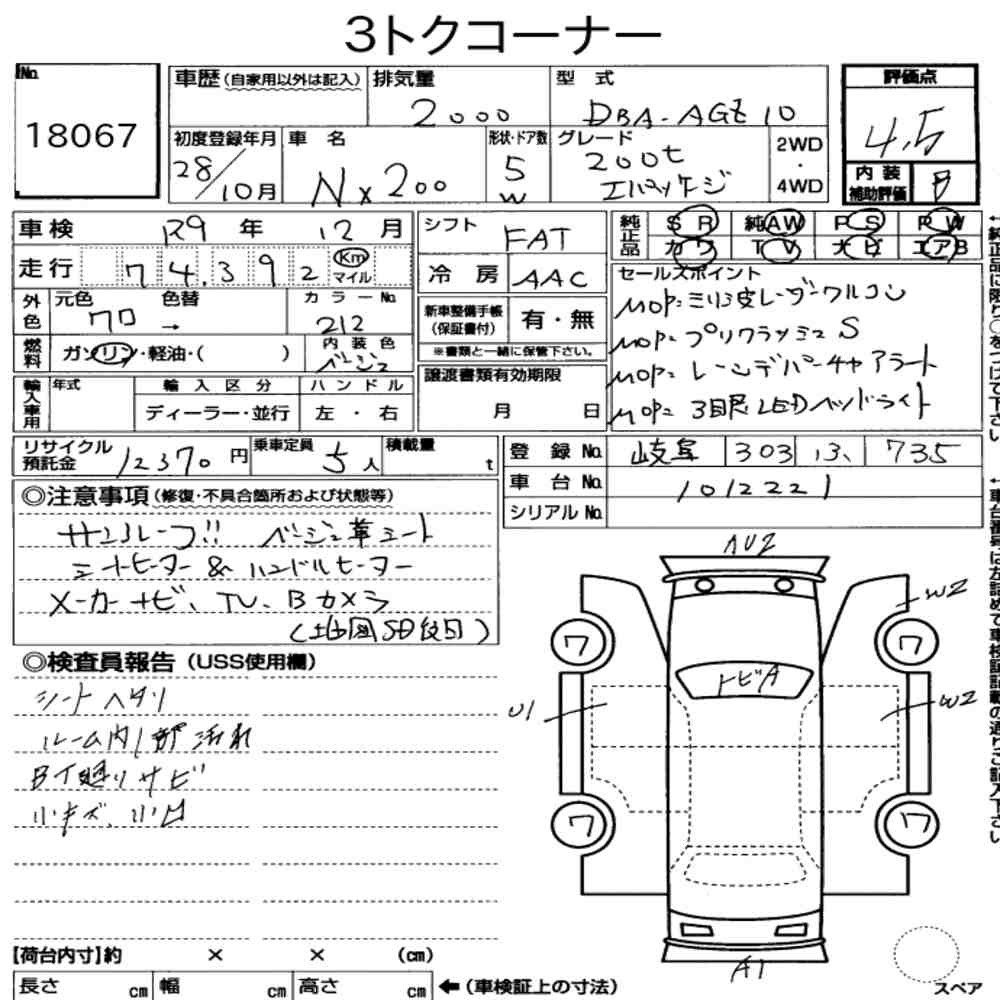 3トクコーナー
No.
18067
車歴(自家用以外は記入)
排気量
2000
型 式
DBA-AGZ10
評価点
4.5
内装
補助評価
B
初度登録年月
28/10月
車 名
NX200
形状・ドア数
5
W
グレード
200t
Iパッケージ
2WD
・
4WD
車検
R9 年 12 月
走行
7 4.3 9 2
Km
マイル
シフト
FAT
冷 房
AAC
純正品
SR 純AW PS PW
カワ TV ナビ エアB
外色
元色
クロ
色替
→
カラーNo.
212
燃料
ガソリン・軽油・( )
内装色
ベージュ
新車整備手帳
(保証書付)
有・無
※書類と一緒に保管下さい。
セールスポイント
MOP=ミリ波レーダークルコン
MOP=プリクラッシュS
MOP=レーンデパーチャアラート
MOP=3眼LEDヘッドライト
輸入車用
年式
輸入区分
ディーラー・並行
ハンドル
左 ・ 右
譲渡書類有効期限
月 日
リサイクル
預託金
12370 円
乗車定員
5人
積載量
t
登 録 No.
岐阜 303 ひ 735
車 台 No.
1012221
シリアル No.
◎注意事項(修復・不具合箇所および状態等)
サンルーフ!! ベージュ革シート
シートヒーター & ハンドルヒーター
メーカーナビ、TV、Bカメラ
(地図SD欠品)
◎検査員報告(USS使用欄)
シートヘタリ
ルーム内1部汚れ
B下廻りサビ
小キズ、小凹
AU2
W2
ワ
ワ
トビA
U1
W2
ワ
ワ
A1
スペア
【荷台内寸】約 × × (cm)
長さ cm 幅 cm 高さ cm ←(車検証上の寸法)
←純正品に限り○をつけて下さい
←車台番号は左詰めで車検証記載の通りご記入下さい